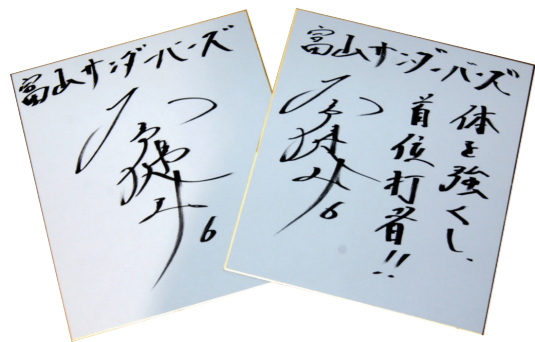 富山サンダーバーズ
6
富山サンダーバーズ
体を強くし、
首位打者!!
6